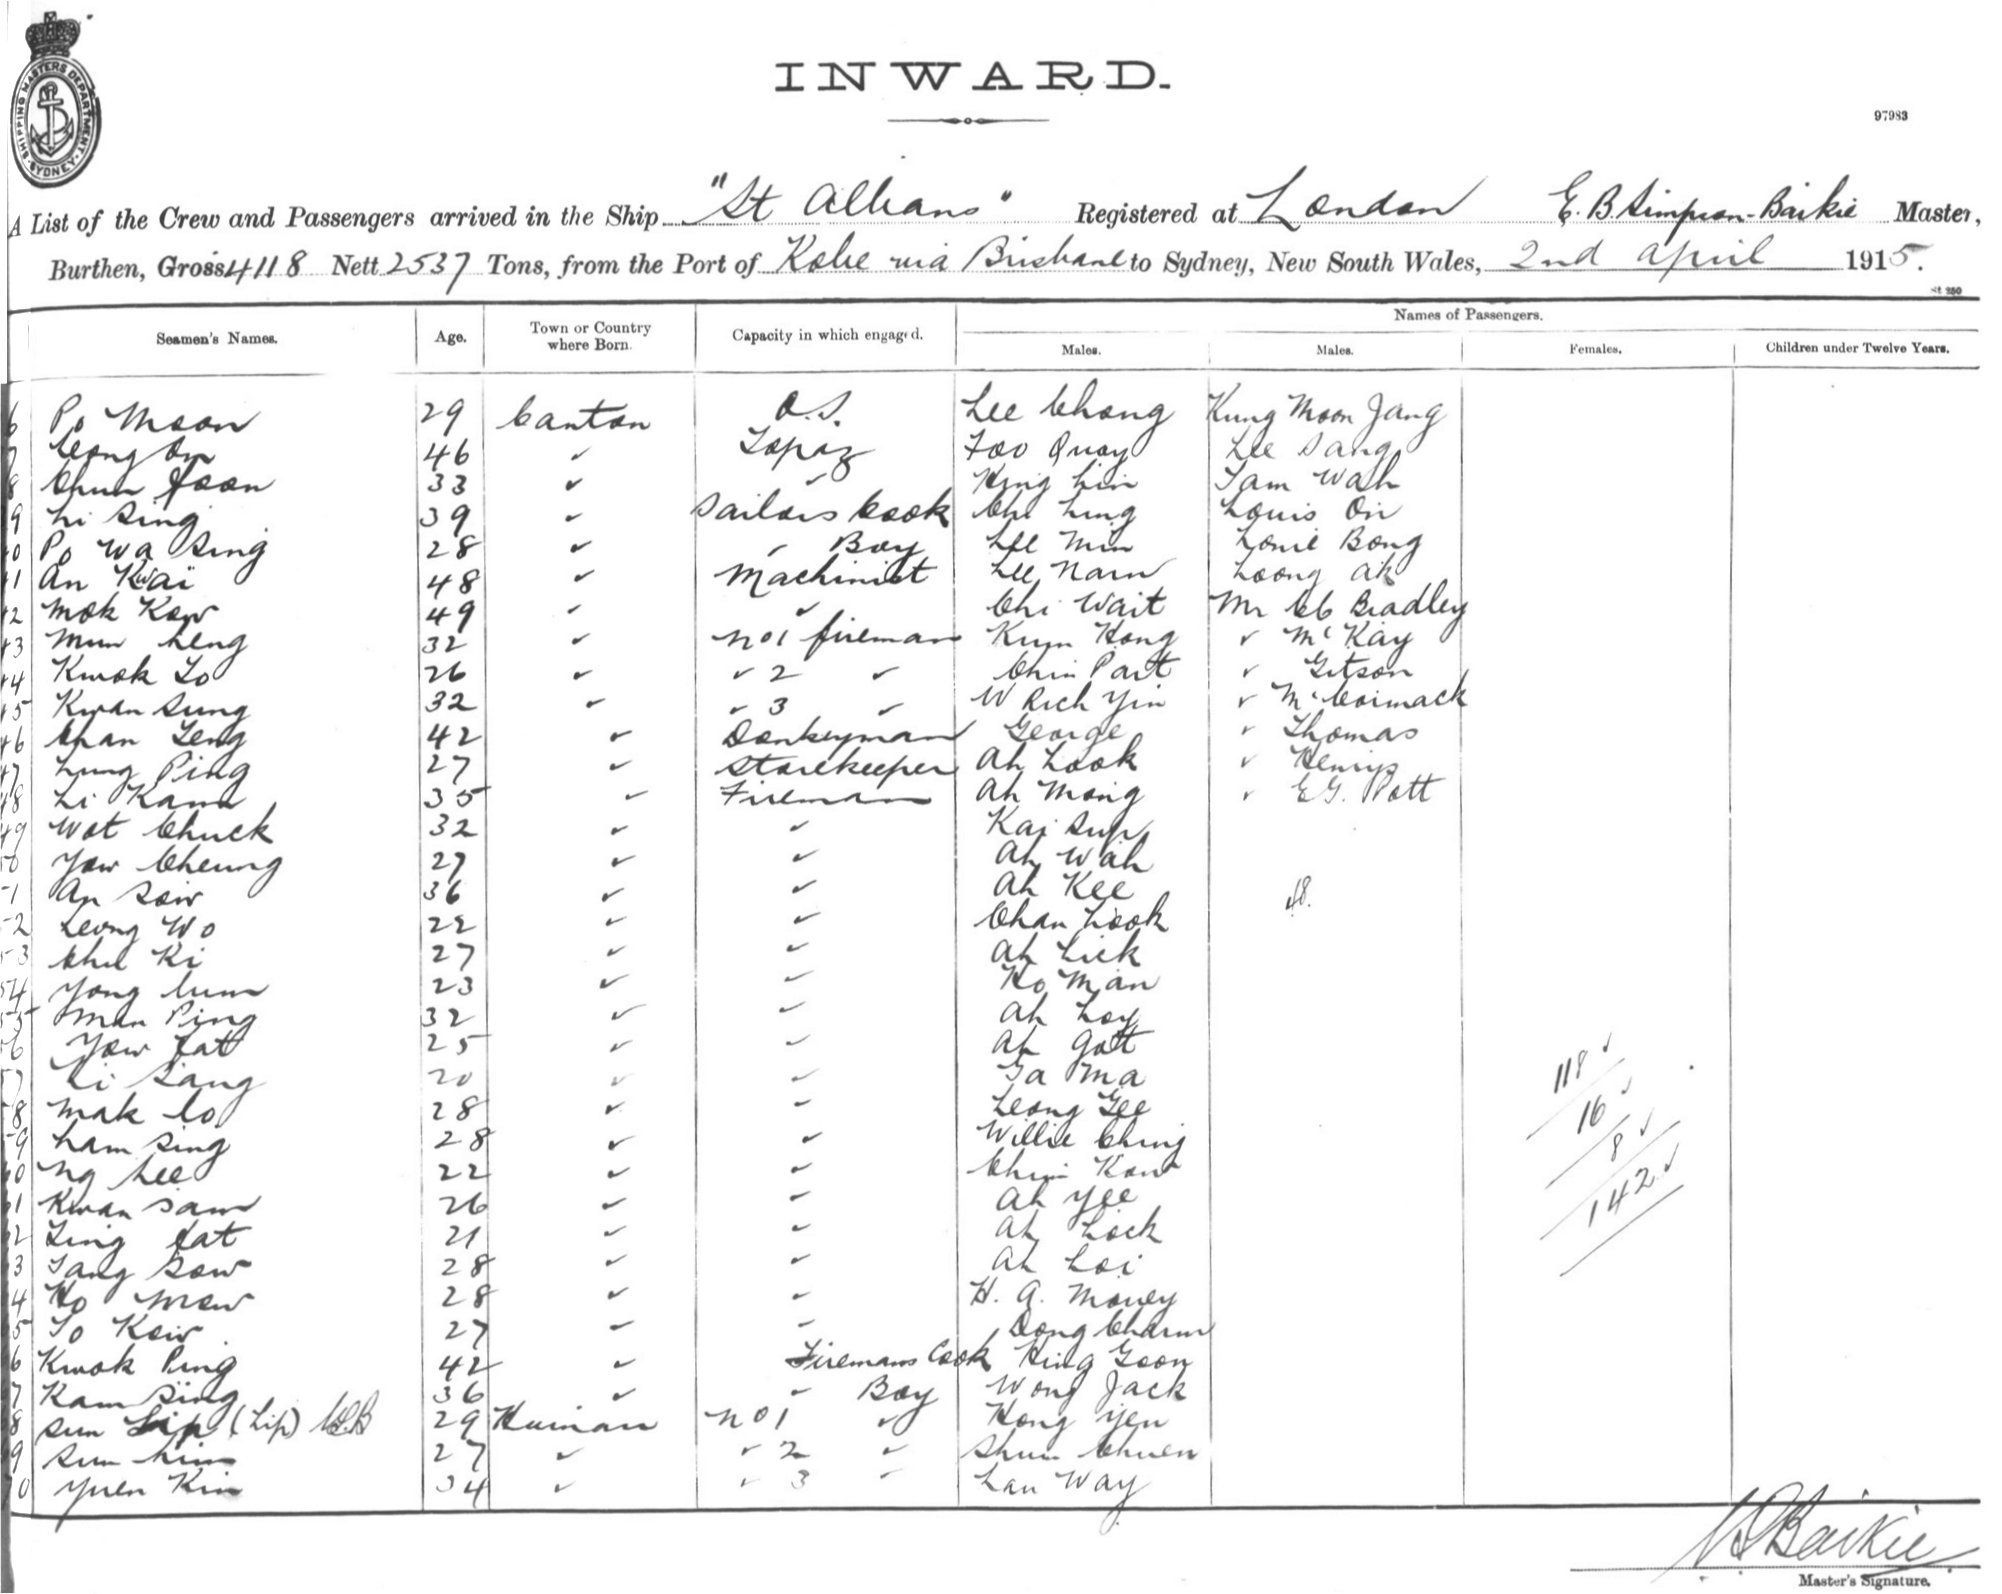 SHIPPING MASTERS DEPARTMENT SYDNEY
INWARD.
97983
A List of the Crew and Passengers arrived in the Ship "St Albans" Registered at London E. B. Simpson-Baikie Master,
Burthen, Gross 4118 Nett 2537 Tons, from the Port of Kobe via Brisbane to Sydney, New South Wales, 2nd April 1915.
St 350
Names of Passengers.
Seamen's Names. Age. Town or Country where Born. Capacity in which engaged. Males. Males. Females. Children under Twelve Years.
6 Po Moon 29 Canton O.S. Lee Chong Kung Moon Jang
7 Cong On 46 " Topaz Foo Quay Lee Sang
8 Chun Foon 33 " " King Lin Sam Wah
9 Li Sing 39 " Sailors Cook Chi Ling Louis On
40 Po Wa Sing 28 " " Boy Lee Min Louie Bong
41 An Kwai 48 " Machinist Lee Narn Loong Ah
42 Mok Kow 49 " " Chi Wait Mr Bradley
43 Mun Leng 32 " No 1 fireman Kum Hong " McKay
44 Kwok To 26 " " 2 " Chin Part " Gitson
45 Kwan Sung 32 " " 3 " W Rich Yin " McCormack
46 Chan Leng 42 " Donkeyman George " Thomas
47 Lung Ping 27 " Storekeeper Ah Look " Henrys
48 Li Kam 35 " Fireman Ah Mong " E.G. Pott
49 Wot Chuck 32 " " Kai Sup
50 Yow Cheung 27 " " Ah Wah
51 An Sow 36 " " Ah Kee 48.
52 Leong Wo 22 " " Chan Look
53 Chu Ki 27 " " Ah Lick
54 Yong Lum 23 " " Ho Man
55 Man Ping 32 " " Ah Loy
56 Yow Fat 25 " " Ah Gott
57 Li Sang 20 " " Sa Ma
58 Mak Lo 28 " " Leong Gee
59 Lam Sing 28 " " Willie Ching
60 Ng Lee 22 " " Chin Kow
61 Kwan Sam 26 " " Ah Yee
62 Ling Fat 21 " " Ah Lock
63 Tang Sow 28 " " Ah Loi
64 Ho Mow 28 " " H. A. Money
65 To Kow 27 " " Dong Charm
66 Kwok Ping 42 " Firemans Cook King Goon
67 Kam Sing 36 " " Boy Wong Jack
68 Sun Lip (Lip) 29 Hainan No 1 " Hong Yen
69 Sun Lim 27 " " 2 " Shum Chuen
70 Yuen Kin 34 " " 3 " Lau Way
118
16
8
142
Baikie
Master's Signature.